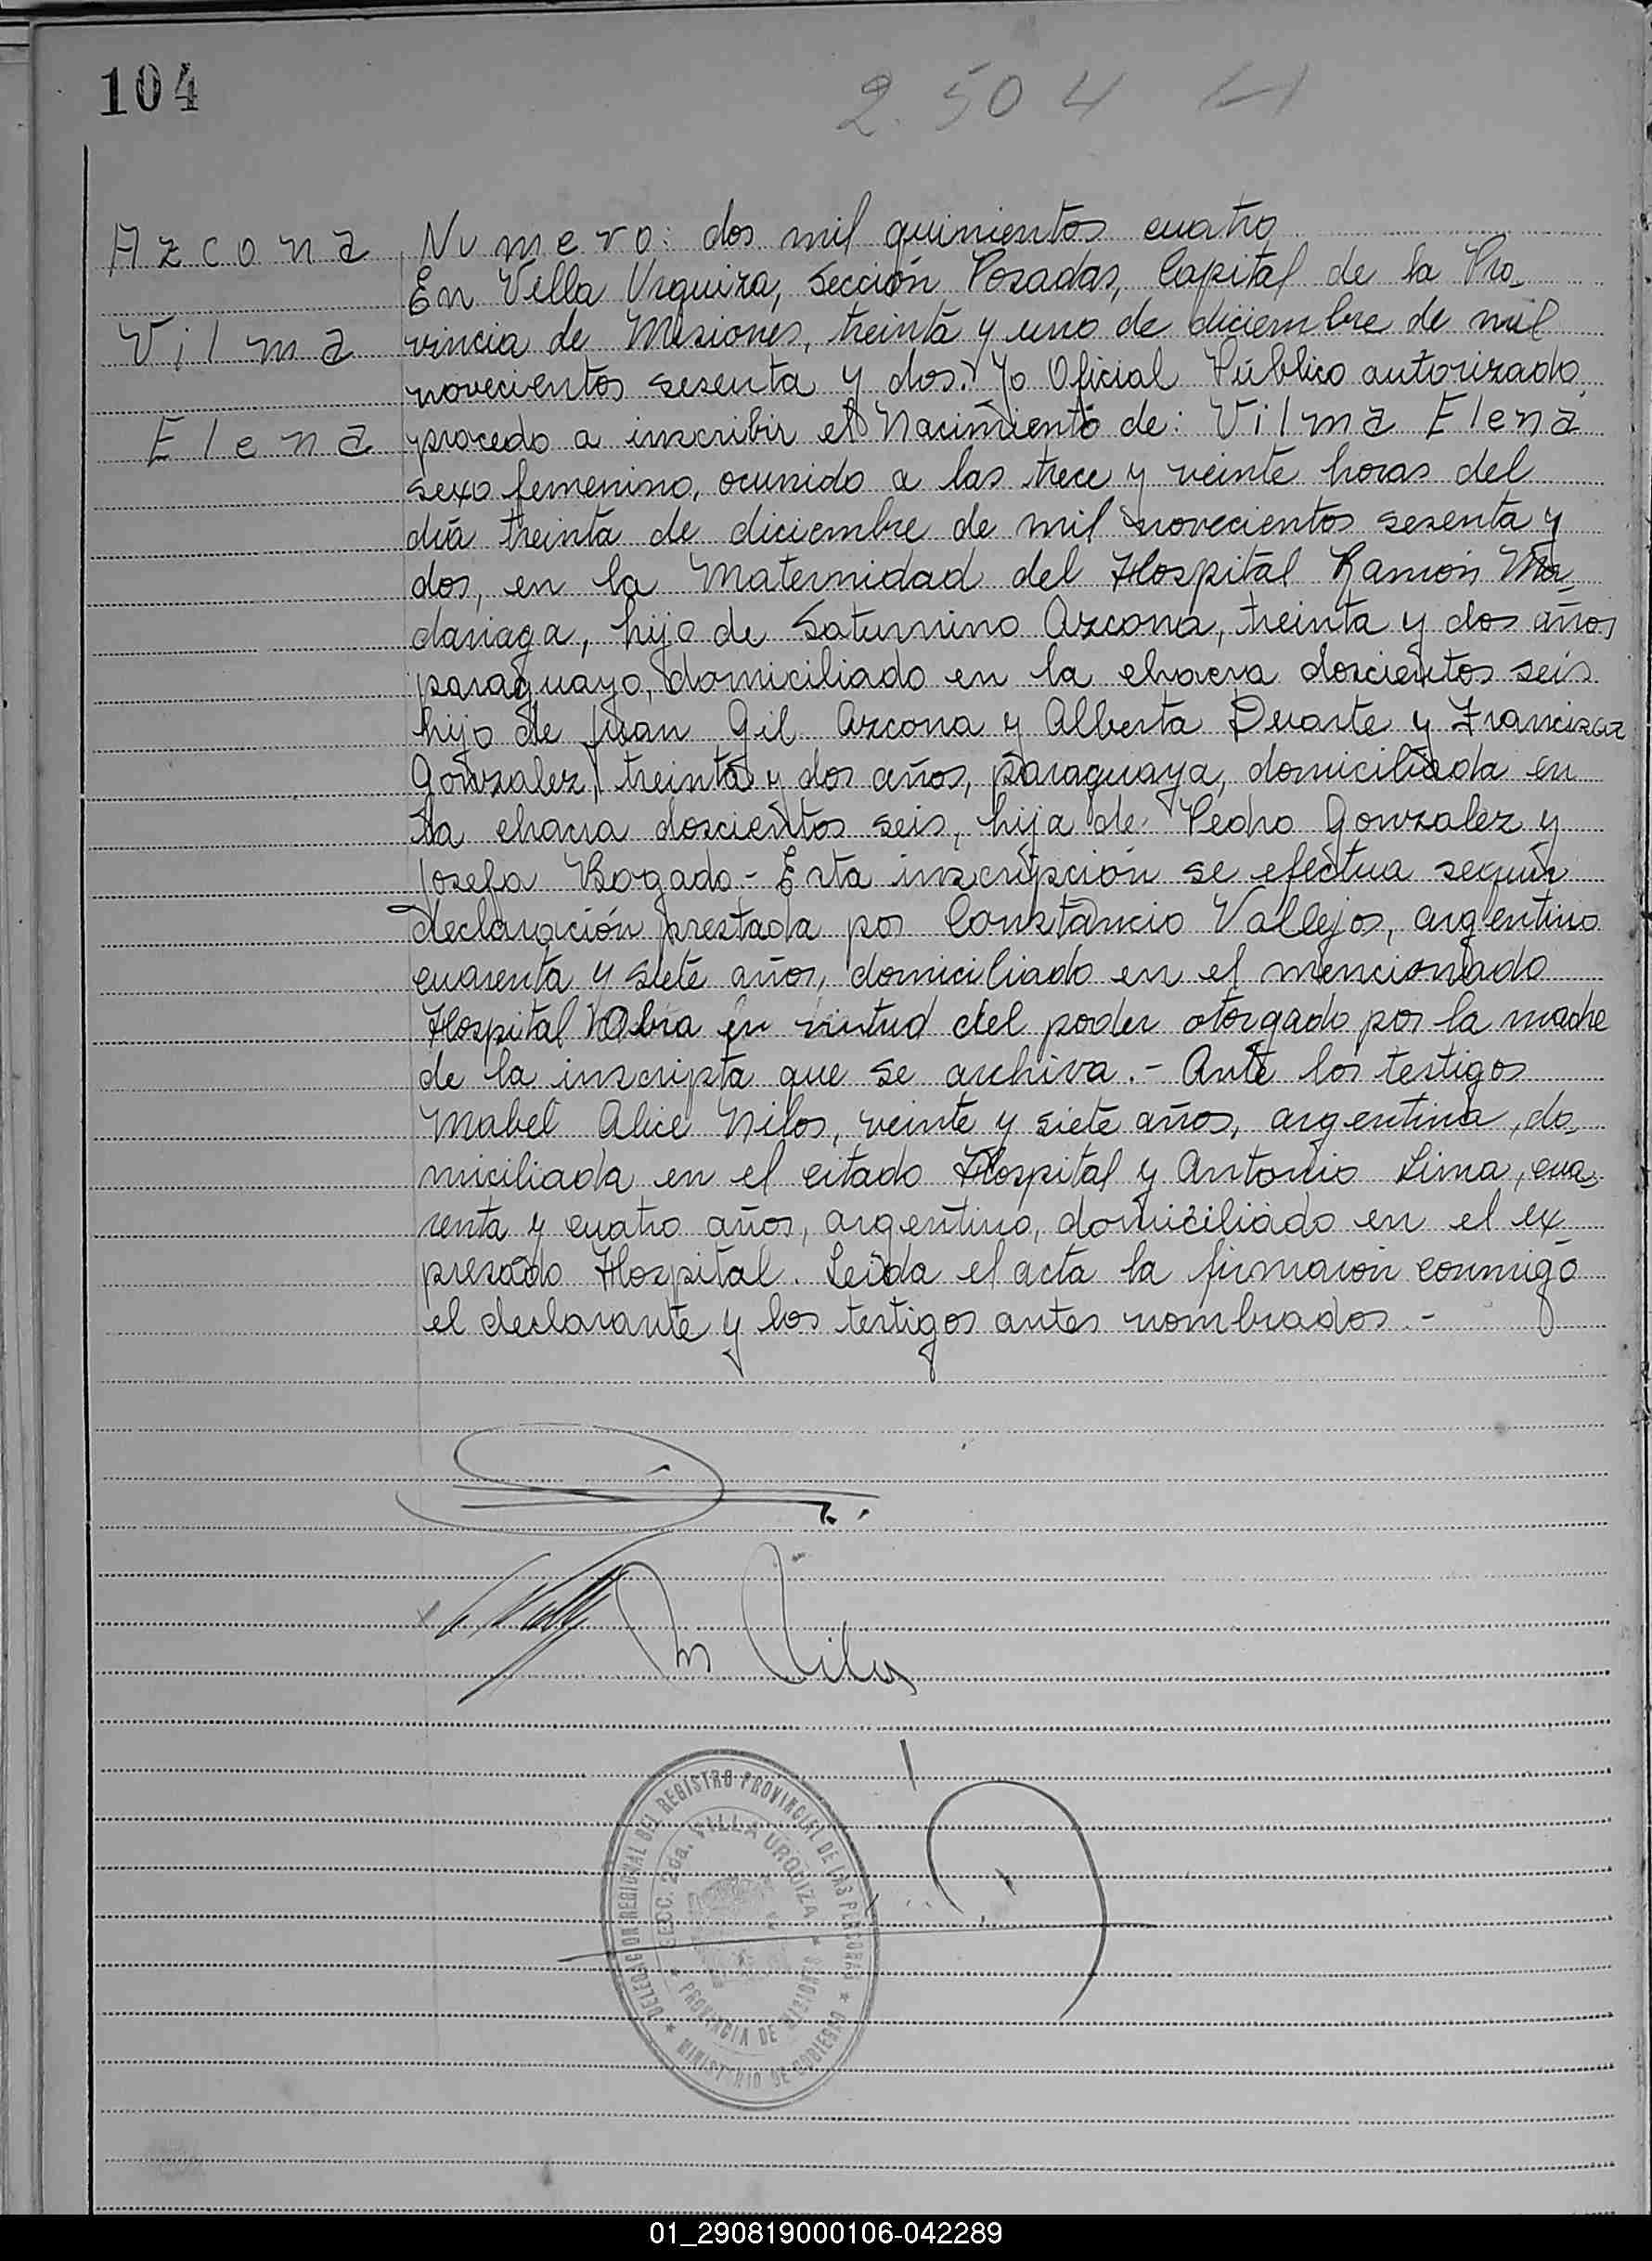 104
2.504
Azcona
Vilma
Elena
Numero: dos mil quinientos cuatro
En Villa Urquiza, Sección Posadas, Capital de la Pro-
vincia de Misiones, treinta y uno de diciembre de mil
novecientos sesenta y dos. Yo Oficial Público autorizado
procedo a inscribir el Nacimiento de: Vilma Elena
sexo femenino, ocurrido a las trece y veinte horas del
día treinta de diciembre de mil novecientos sesenta y
dos, en la Maternidad del Hospital Ramón Ma-
dariaga, hijo de Saturnino Azcona, treinta y dos años
paraguayo, domiciliado en la chacra doscientos seis
hijo de Juan Gil Azcona y Alberta Duarte y Francisca
Gonzalez, treinta y dos años, paraguaya, domiciliada en
la chacra doscientos seis, hija de Pedro Gonzalez y
Josefa Bogado - Esta inscripción se efectua según
declaración prestada por Constancio Vallejos, argentino
cuarenta y siete años, domiciliado en el mencionado
Hospital Obra en virtud del poder otorgado por la madre
de la inscripta que se archiva. - Ante los testigos
Mabel Alice Nilos, veinte y siete años, argentina, do-
miciliada en el citado Hospital y Antonio Lima, cua-
renta y cuatro años, argentino, domiciliado en el ex-
presado Hospital. Leída el acta la firmaron conmigo
el declarante y los testigos antes nombrados. -
DELEGACION REGIONAL DEL REGISTRO PROVINCIAL DE LAS PERSONAS
SECC. 2da. VILLA URQUIZA
PROVINCIA DE MISIONES
MINISTERIO DE GOBIERNO
01_290819000106-042289